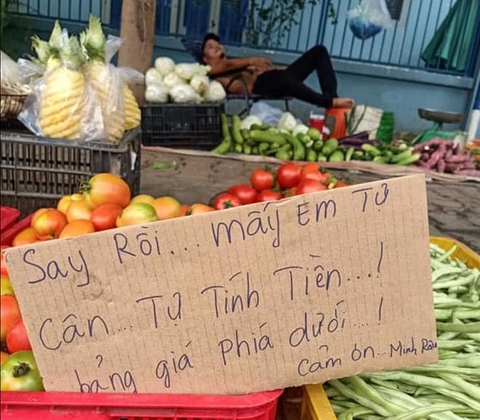 Say Rồi... mấy Em Tự
Cân... Tự Tính Tiền...!
bảng giá phiá dưới...!
Cảm ơn... Minh Râu